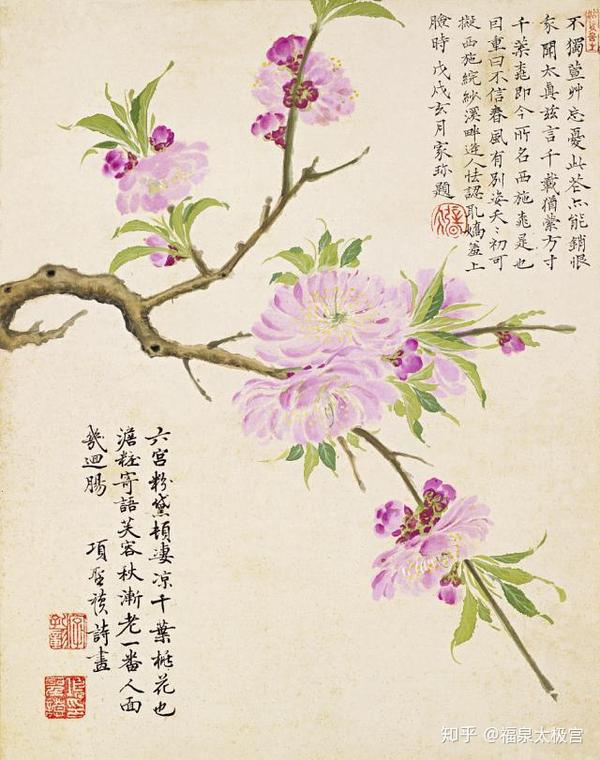 不獨萱艸忘憂此花亦能銷恨
家聞太真茲言千載猶縈方寸
千葉桃即今所名西施桃是也
因重曰不信春風有別姿夭〻初可
擬西施浣紗溪畔逢人怯認取嬌羞上
臉時戊戌玄月家珍題
六宮粉黛頓凄凉千葉桃花也
澹粧寄語芙容秋漸老一番人面
幾迴腸 項聖謨詩畫
知乎 @福泉太极宫